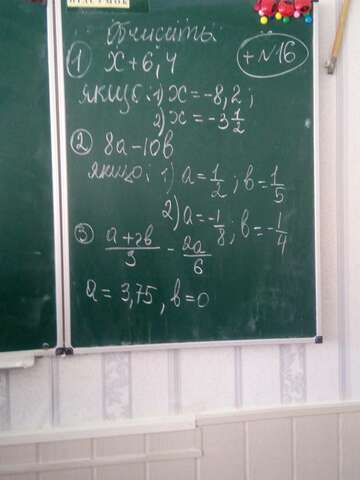 Обчисліть
+ №16
① x + 6,4
якщо: 1) x = -8,2;
2) x = -3 1/2
② 8a - 10b
якщо: 1) a = 1/2; b = 1/5
2) a = -1/8; b = -1/4
③ (a + 2b)/3 - 2a/6
a = 3,75, b = 0